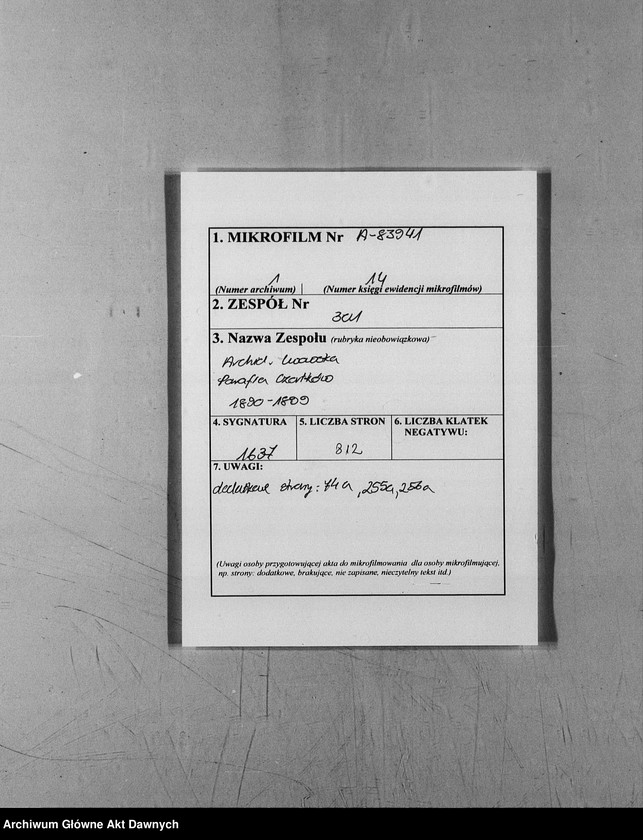 1. MIKROFILM Nr A-83941
1 14
(Numer archiwum) | (Numer księgi ewidencji mikrofilmów)
2. ZESPÓŁ Nr
301
3. Nazwa Zespołu (rubryka nieobowiązkowa)
Archid. Lwowska
Parafia Czortków
1890-1899
4. SYGNATURA
1637
5. LICZBA STRON
812
6. LICZBA KLATEK
NEGATYWU:
7. UWAGI:
dodatkowe strony: 74a, 255a, 256a
(Uwagi osoby przygotowującej akta do mikrofilmowania dla osoby mikrofilmującej,
np. strony: dodatkowe, brakujące, nie zapisane, nieczytelny tekst itd.)
Archiwum Główne Akt Dawnych